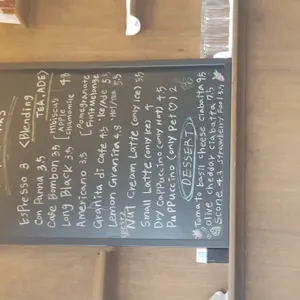 Espresso 3 <Blending
Con Panna 3.5 TEA, ADE>
Cafe Bombon 3.5 [Hibiscus
Apple 4.8
Chamomile
Long Black 3.5
Americano 3.5 [Pomegranate
Fruit Melange
Granita di Cafe 4.5 *Ice/Ade 5.3
Lemon Granita 4.8 *Hot/Tea 5.5
Nut Cream Latte (only ice) 3.5
Small Latte (only ice) 4
Dry Cappuccino (only Hot) 4.5
Puppuccino (only Pet♡) 2
DESSERT
tomato basil cheese ciabatta 9.5
olive cheddar ciabatta 7.5
Scone 4.2 strawberry